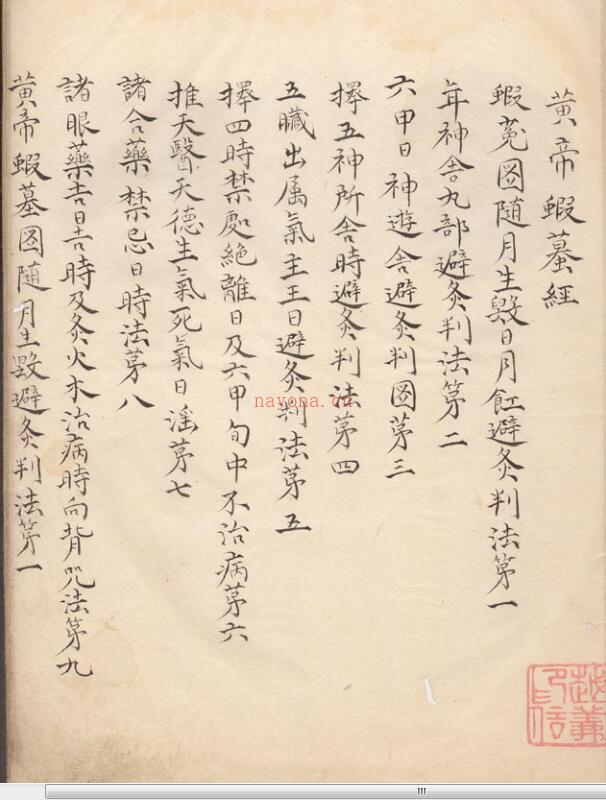 黄帝蝦蟇經
蝦菟圖随月生毀日月蝕避灸判法第一
年神舍九部避灸判法第二
六甲日神遊舍避灸判圖第三
擇五神所舍時避灸判法第四
五臓出属氣主王日避灸判法第五
擇四時禁處絶離日及六甲旬中不治病第六
推天醫天德生氣死氣日第七
諸合藥禁忌日時法第八
諸眼藥吉日吉時及灸火木治病時向背咒法第九
黄帝蝦蟇圖随月生毀避灸判法第一
nayona.cn